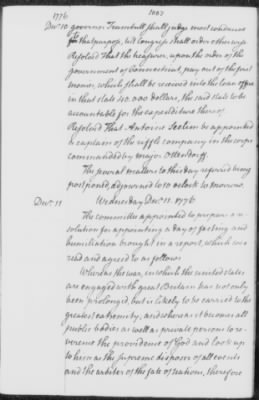 1007
1776
Decr. 10 governor Trumbull shall judge most conducive
for that purpose, till Congress shall order otherwise
Resolved That the treasurer, upon the order of the
government of Connecticut, pay out of the first
money, which shall be received into the loan office
in that state 40.000 dollars, the said state to be
accountable for the expenditure thereof
Resolved That Antoine be appointed
a captain of the riffle company in the corps
commanded by major Ottendorff.
The several matters to this day referred being
postponed, adjourned to 10 oClock to morrow.
Decr. 11 Wednesday Decr. 11. 1776
The committee appointed to prepare a re
solution for appointing a day of fasting and
humiliation brought in a report, which was
read and agreed to as follows
Whereas the war, in which the united states
are engaged with great Britain has not only
been prolonged, but is likely to be carried to the
greatest extremity, and whereas it becomes all
public bodies as well as private persons to re-
verence the providence of God and look up
to him as the supreme disposer of all events
and the arbiter of the fate of nations, therefore